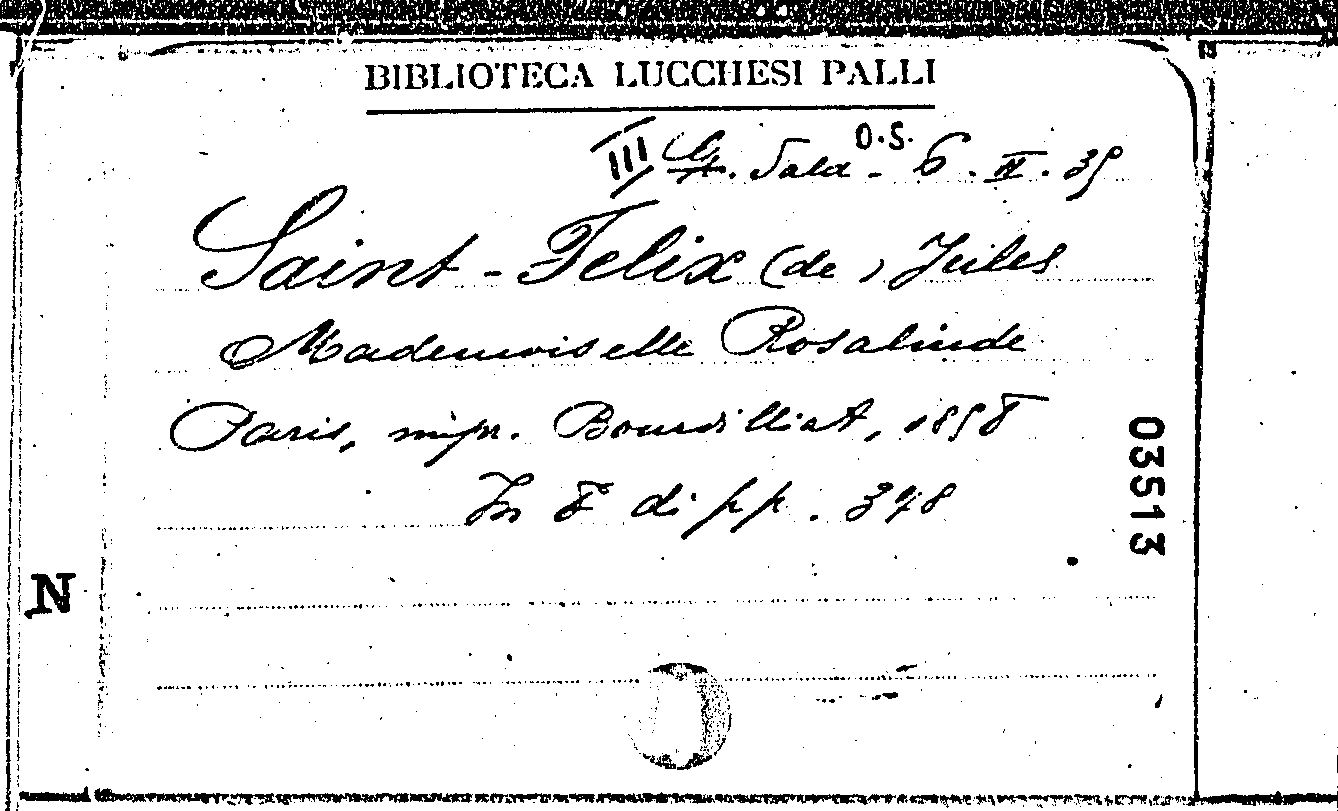 BIBLIOTECA LUCCHESI PALLI
III G. Sala O.S. - 6. II. 35
Saint-Felix (de) Jules
Mademoiselle Rosalinde
Paris, impr. Bourdilliat, 1858
In 8 di pp. 348
03513
N